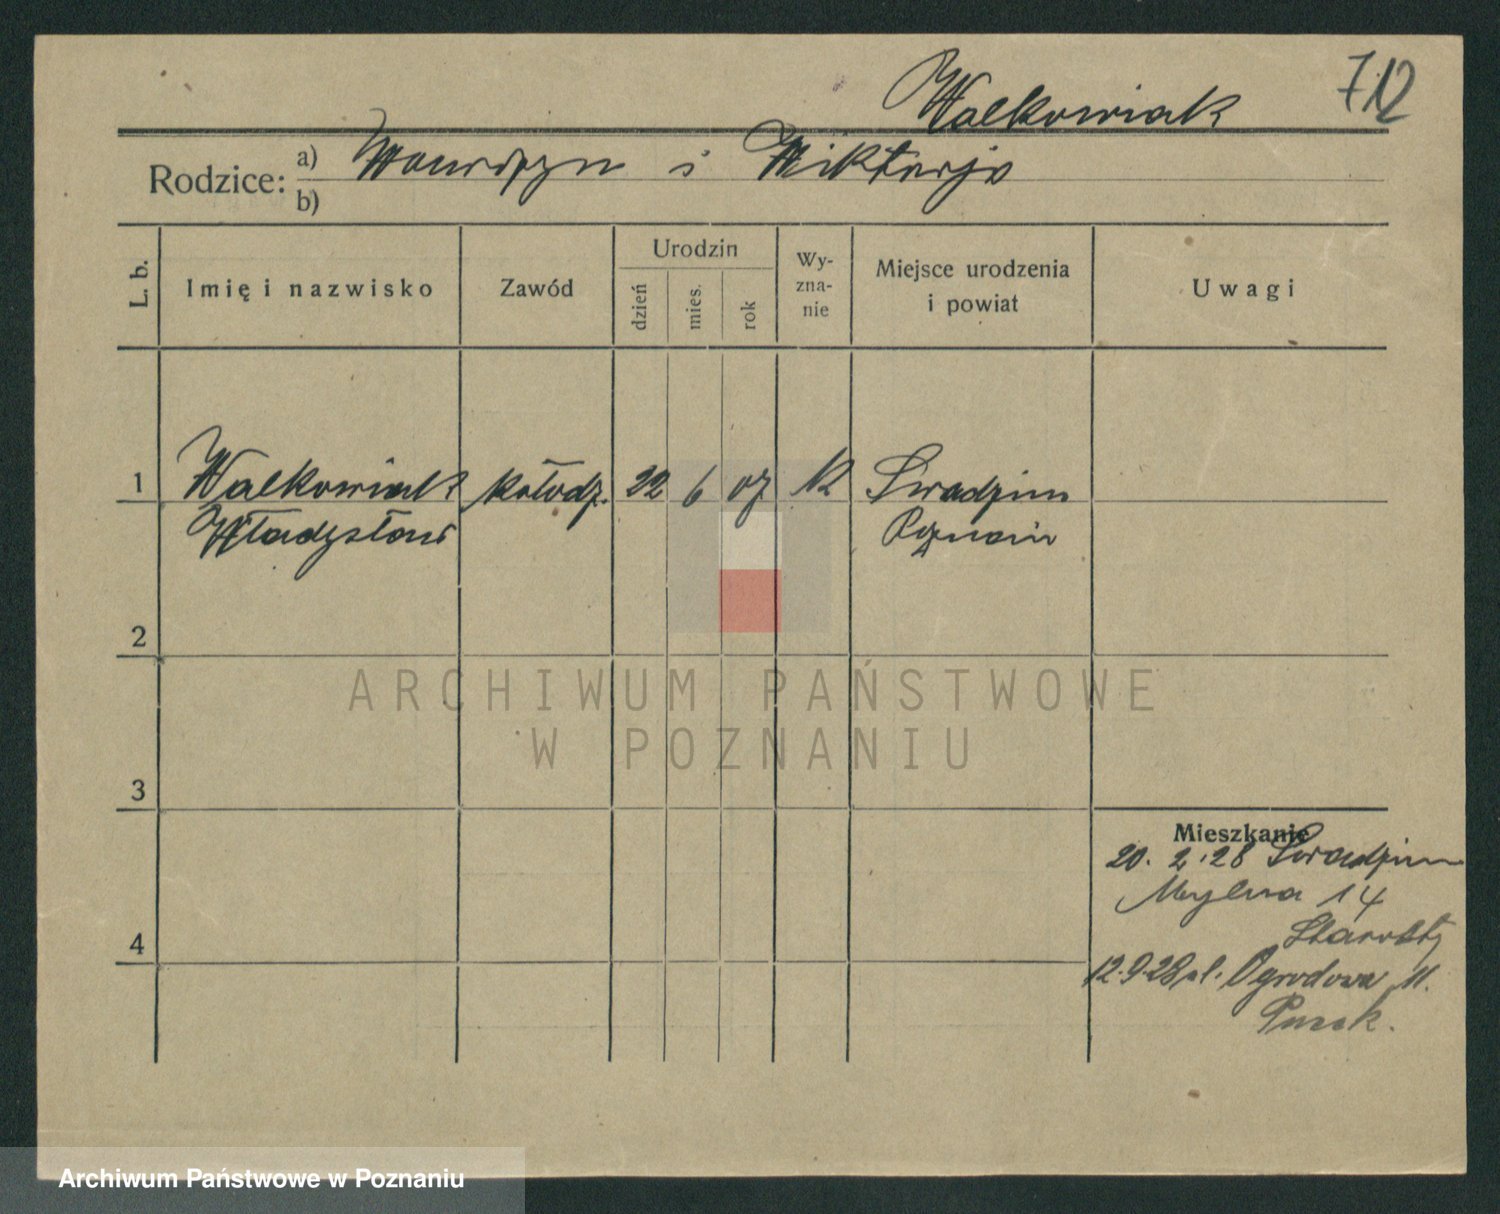 Walkowiak
712
Rodzice: a) Wawrzyn i Wiktorja
b)
L. b.
Imię i nazwisko
Zawód
Urodzin
dzień
mies.
rok
Wy-
zna-
nie
Miejsce urodzenia
i powiat
Uwagi
1 Walkowiak kołodz. 22 6 07 K Swadzim
Władysław Poznań
2
ARCHIWUM PAŃSTWOWE
W POZNANIU
3
Mieszkanie
20. 2. 28 Swadzim
Mylna 14
4
12.9.28 Ogrodowa 11.
Archiwum Państwowe w Poznaniu